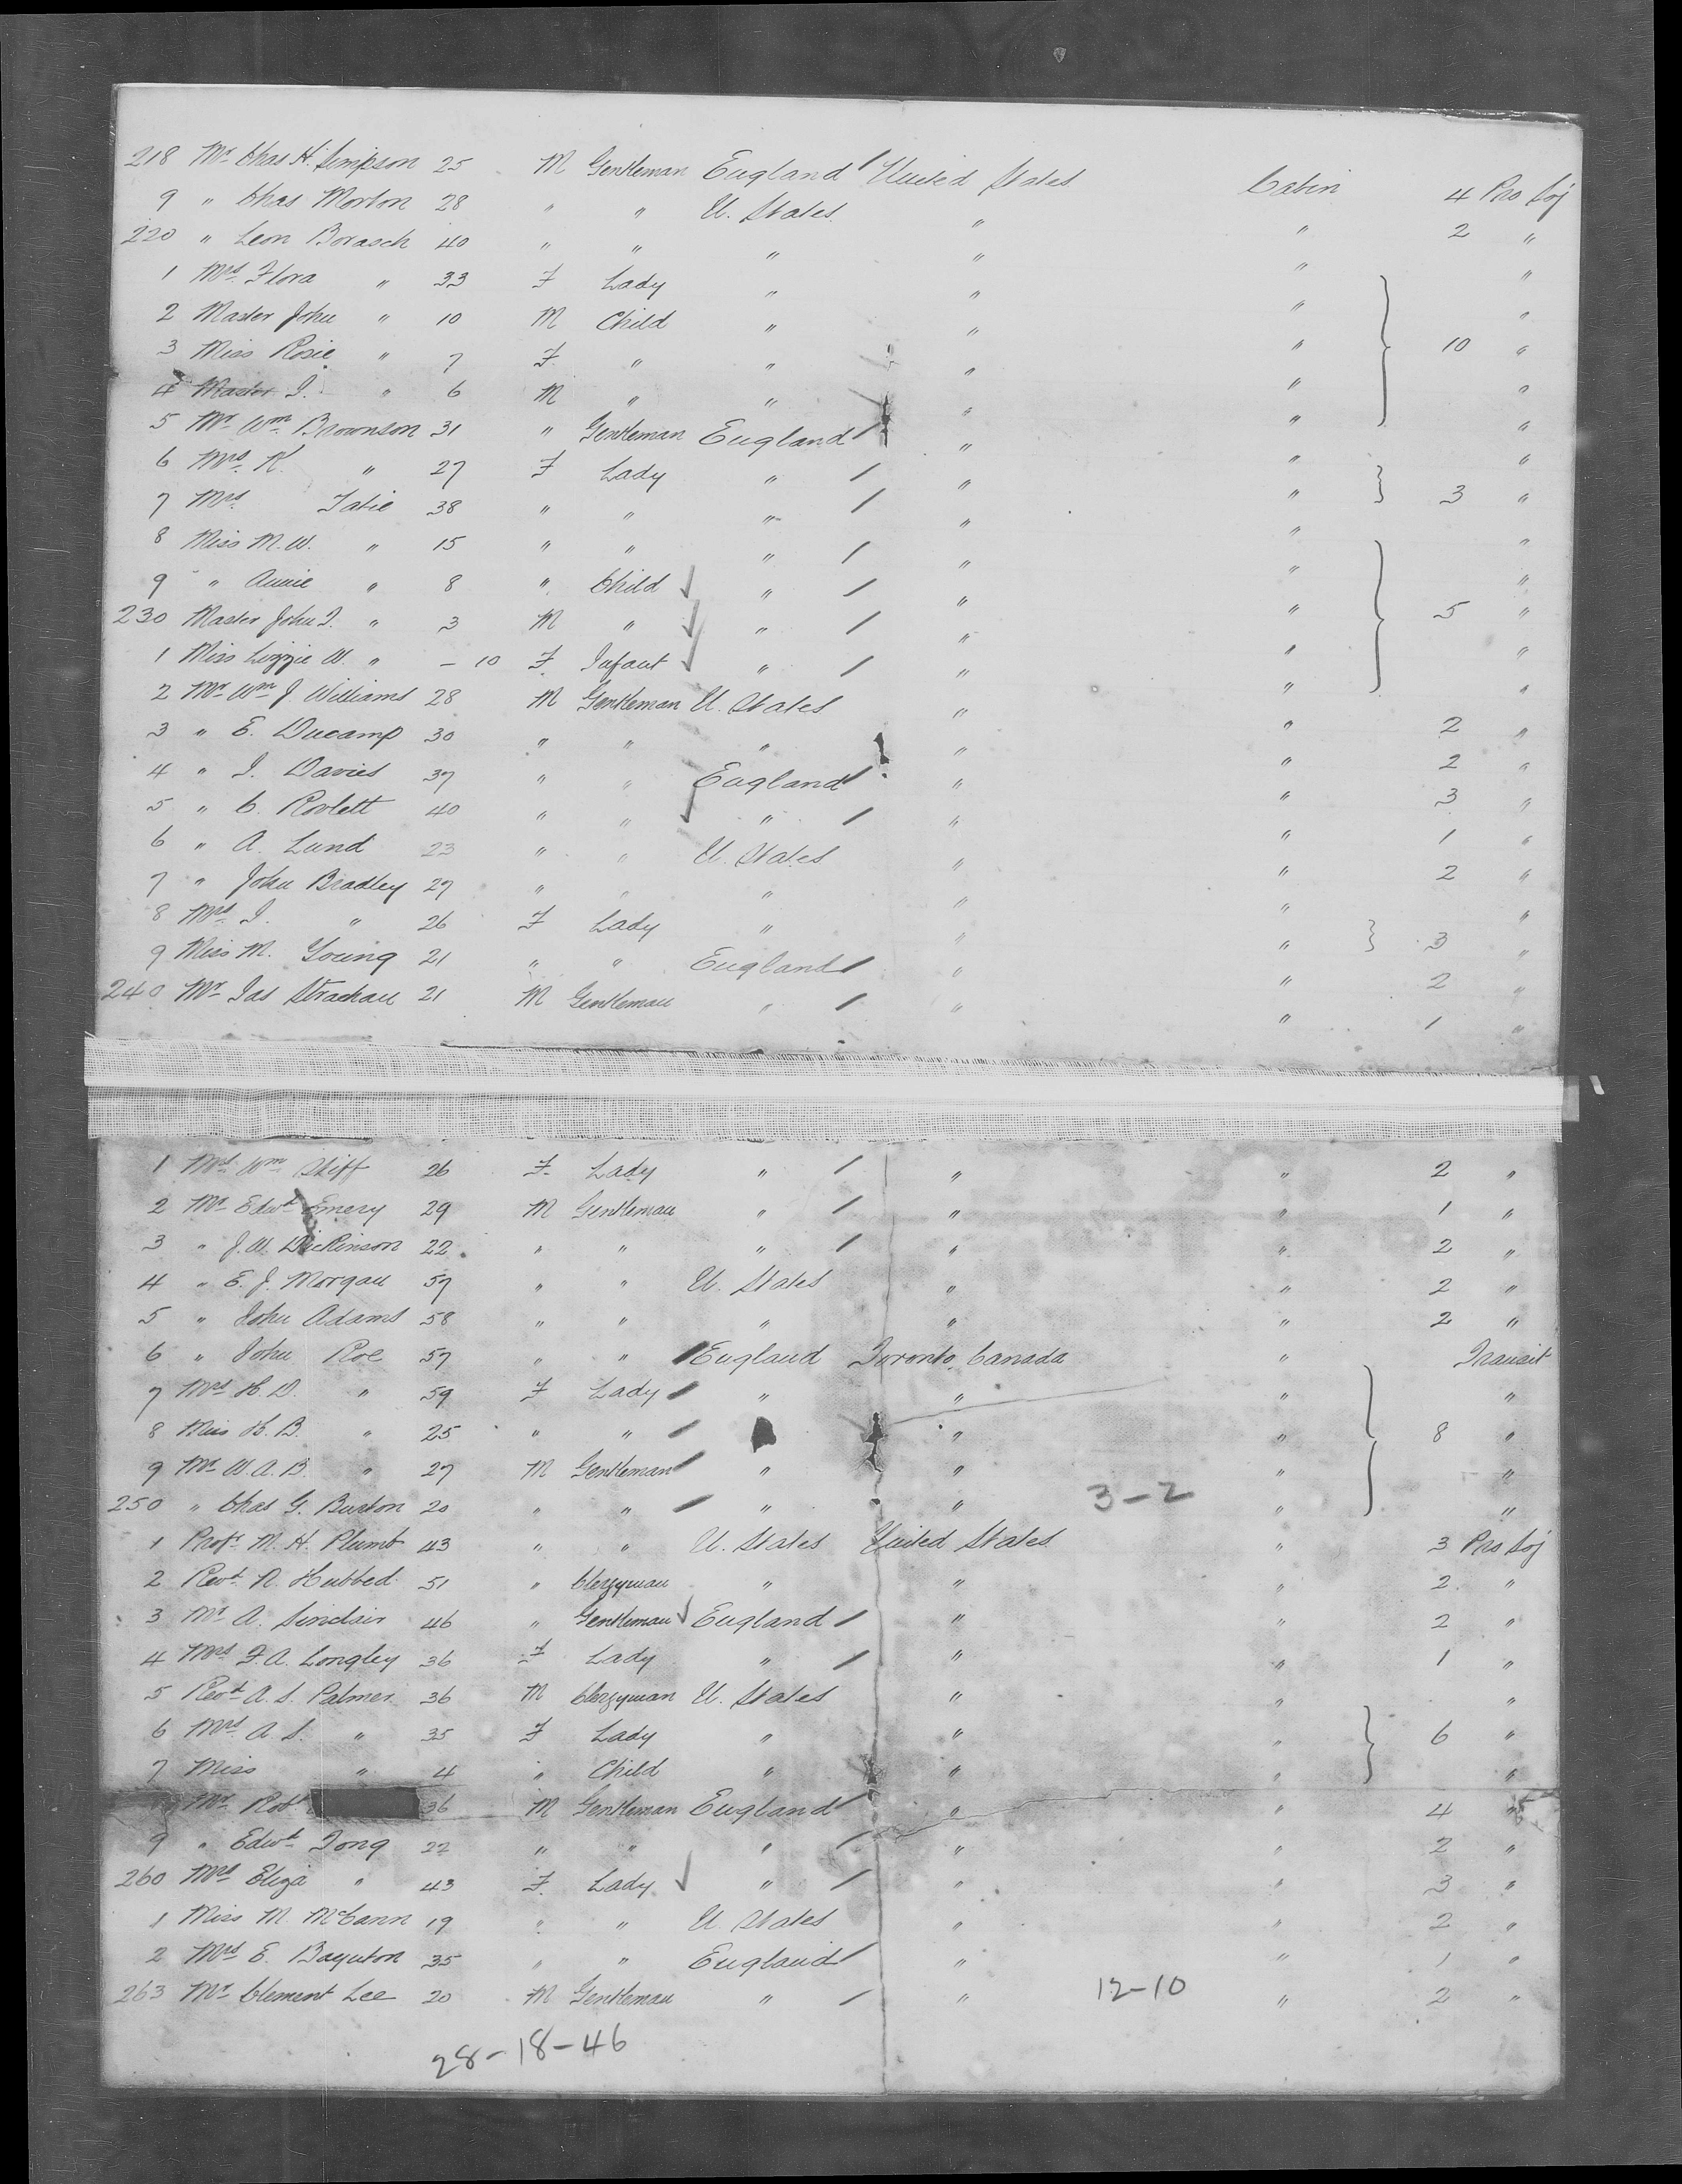 218 Mr Chas H. Simpson 25 M Gentleman England / United States Cabin 4 Pro Soj
9 " Chas Morton 28 " " U. States " " 2 "
220 " Leon Borasch 40 " " " " " "
1 Mrs Flora " 33 F Lady " " " "
2 Master John " 10 M Child " " " 10 "
3 Miss Rosie " 7 F " " " " "
4 Master I. " 6 M " " " " "
5 Mr Wm Brownson 31 " Gentleman England / " " "
6 Mrs K. " 27 F Lady " / " " 3 "
7 Mrs Tatie 38 " " " / " " "
8 Miss M. W. " 15 " " " / " " "
9 " Annie " 8 " Child ✓ " / " " 5 "
230 Master John I. " 3 M " ✓ " / " " "
1 Miss Lizzie W. " – 10 F. Infant ✓ " / " " "
2 Mr Wm J. Williams 28 M Gentleman U. States " " 2 "
3 " E. Ducamp 30 " " " " " 2 "
4 " I. Davies 37 " " England / " " 3 "
5 " C. Rowlett 40 " " ✓ " / " " 1 "
6 " A. Lund 23 " " U. States " " 2 "
7 " John Bradley 27 " " " " " "
8 Mrs I. " 26 F Lady " " " 3 "
9 Miss M. Young 21 " " England / " " 2 "
240 Mr Jas Strachan 21 M Gentleman " / " " 1 "
1 Mrs Wm Stiff 26 F. Lady " / " " 2 "
2 Mr Edwd Emery 29 M Gentleman " / " " 1 "
3 " J. W. Dickinson 22 " " " / " " 2 "
4 " E. J. Morgan 57 " " U. States " " 2 "
5 " John Adams 58 " " " " " 2 "
6 " John Roe 57 " " / England Toronto, Canada " Transit
7 Mrs H. D. " 59 F Lady / " " " "
8 Miss H. B. " 25 " " / " " 8 "
9 Mr W. A. B. " 27 M Gentleman / " " " "
250 " Chas G. Burton 20 " " / " " 3-2 " "
1 Profr M. H. Plumb 43 " " U. States United States " 3 Pro Soj
2 Revd N. Hubbed. 51 " Clergyman " " " 2 "
3 Mr A. Sinclair 46 " Gentleman ✓ England / " " 2 "
4 Mrs F. A. Longley 36 F Lady " / " " 1 "
5 Revd A. S. Palmer 36 M Clergyman U. States " " "
6 Mrs A. S. " 35 F Lady " " " 6 "
7 Miss " 4 " Child " " " "
Mr Robt 36 M Gentleman England / " " 4 "
9 " Edwd Tong 22 " " " / " " 2 "
260 Mrs Eliza " 43 F. Lady ✓ " / " " 3 "
1 Miss M. McCann 19 " " U. States " " 2 "
2 Mrs E. Baynton 35 " " England / " " 1 "
263 Mr Clement Lee 20 M Gentleman " / " 12-10 " 2 "
28-18-46